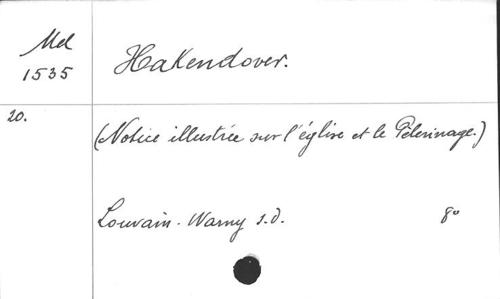 Mel
1535
Hakendover.
20.
(Notice illustrée sur l'église et le Pèlerinage.)
Louvain. Warny s.d.
8°